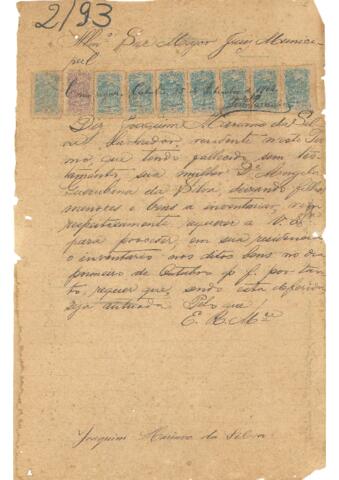 2/93
Illmº Snr Major Juiz Munici-
pal
Como requer.
Diz Joaquim Mariano da Sil-
va, lavrador, residente neste Ter-
mo, que tendo fallecido sem tes-
tamento, sua mulher Dª
da Silva, deixando filhos
menores e bens a inventariar, vem
respeitosamente, requerer a V. Sª
para proceder, em sua residencia
o inventario nos ditos bens no dia
primeiro de Outubro p. f. por tan-
to, requer que, sendo esta deferida
seja autuada Pelo que
E. R. Mce
Joaquim Mariano da Silva